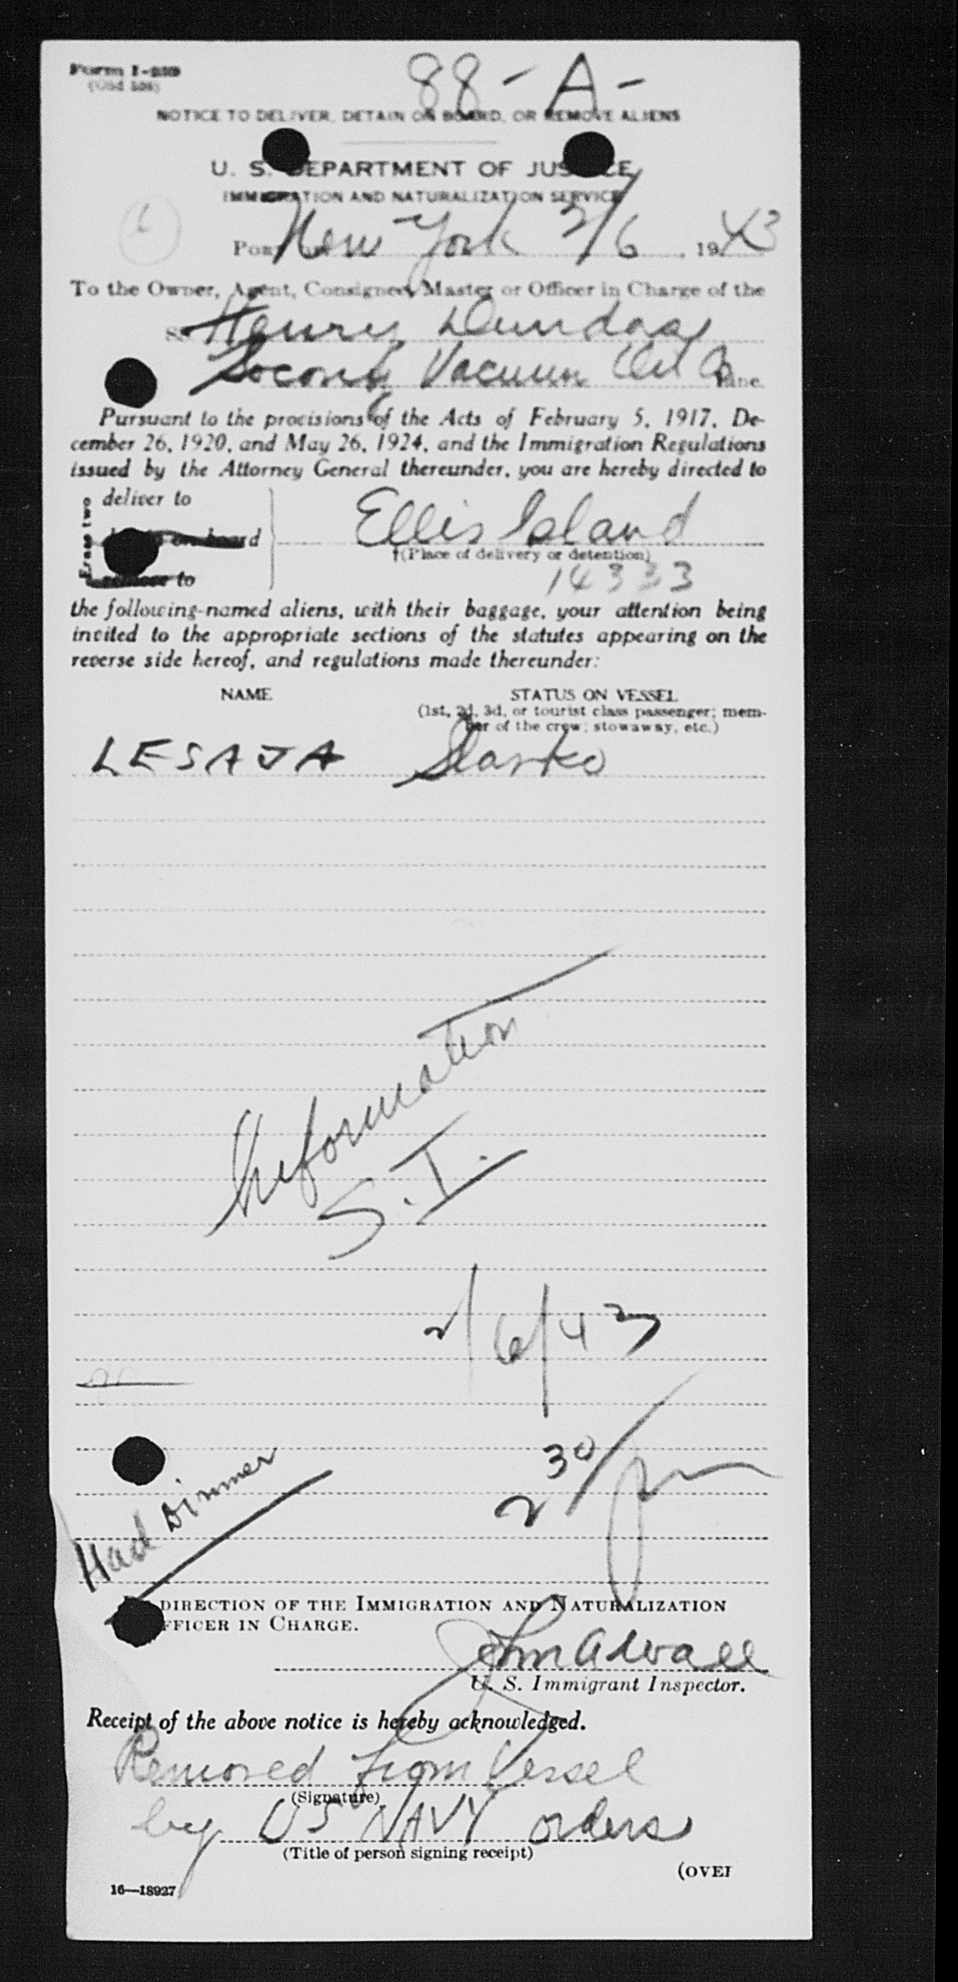 Form I-259
(Old 508)
88-A-
NOTICE TO DELIVER, DETAIN ON BOARD, OR REMOVE ALIENS
U. S. DEPARTMENT OF JUSTICE
IMMIGRATION AND NATURALIZATION SERVICE
Port of New York 2/6, 1943
To the Owner, Agent, Consignee, Master or Officer in Charge of the
SS Henry Dundas
Socony Vacuum Oil Co Line.
Pursuant to the procisions of the Acts of February 5, 1917, De-
cember 26, 1920, and May 26, 1924, and the Immigration Regulations
issued by the Attorney General thereunder, you are hereby directed to
Erase two
deliver to
on board
remove to
Ellis Island
†(Place of delivery or detention)
14333
the following-named aliens, with their baggage, your attention being
invited to the appropriate sections of the statutes appearing on the
reverse side hereof, and regulations made thereunder:
NAME STATUS ON VESSEL
(1st, 2d, 3d, or tourist class passenger; mem-
ber of the crew; stowaway, etc.)
LESAJA Slavko
Information
S.I.
2/6/43
2 30/pm
Had Dinner
DIRECTION OF THE IMMIGRATION AND NATURALIZATION
OFFICER IN CHARGE.
John A Wall
U. S. Immigrant Inspector.
Receipt of the above notice is hereby acknowledged.
Removed from Vessel
(Signature)
by US NAVY orders
(Title of person signing receipt)
(OVER
16—18927